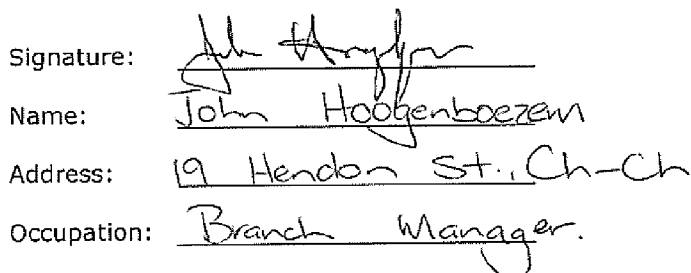 Signature:
Name: John Hoogenboezem
Address: 19 Hendon St., Ch-Ch
Occupation: Branch Manager.